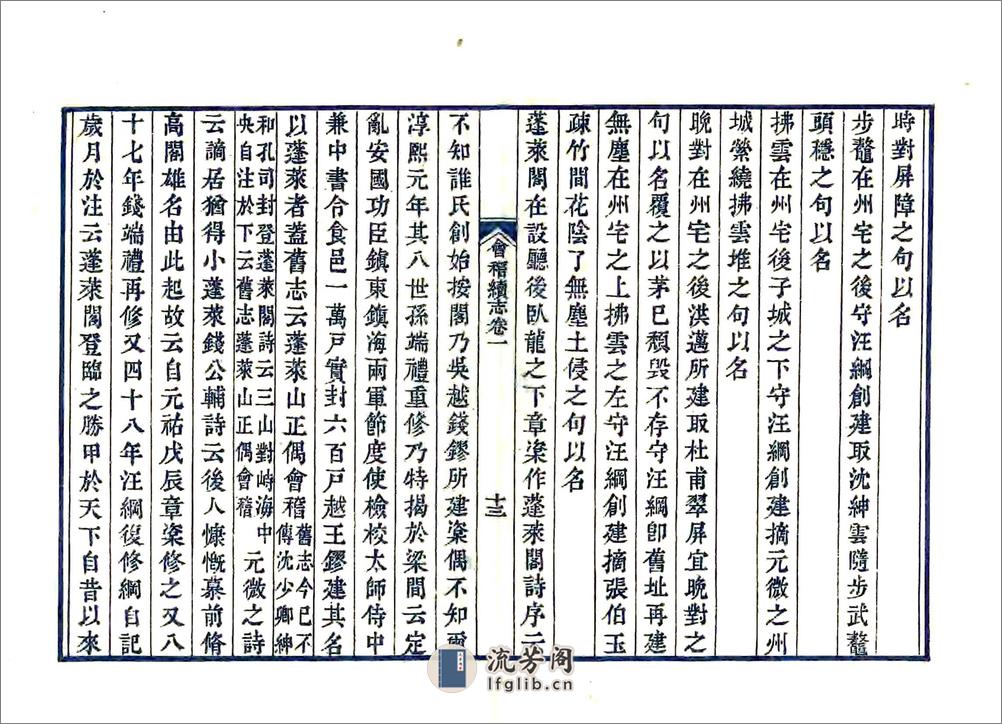 時對屏障之句以名
步鼇在州宅之後守汪綱創建取沈紳雲隨步武鼇
頭穩之句以名
拂雲在州宅後子城之下守汪綱創建摘元微之州
城縈繞拂雲堆之句以名
晚對在州宅之後洪邁所建取杜甫翠屏宜晚對之
句以名覆之以茅已頹毀不存守汪綱卽舊址再建
無塵在州宅之上拂雲之左守汪綱創建摘張伯玉
疎竹間花陰了無塵土侵之句以名
蓬萊閣在設廳後臥龍之下章楶作蓬萊閣詩序云
會稽續志卷一
十三
不知誰氏創始按閣乃吳越錢鏐所建楶偶不知爾
淳熙元年其八世孫端禮重修乃特揭於梁間云定
亂安國功臣鎮東鎮海兩軍節度使檢校太師侍中
兼中書令食邑一萬戸實封六百戸越王鏐建其名
以蓬萊者蓋舊志云蓬萊山正偶會稽舊志今已不
傳沈少卿紳
和孔司封登蓬萊閣詩云三山對峙海中
央自注於下云舊志蓬萊山正偶會稽元微之詩
云謫居猶得小蓬萊錢公輔詩云後人慷慨慕前脩
高閣雄名由此起故云自元祐戊辰章楶修之又八
十七年錢端禮再修又四十八年汪綱復修綱自記
歲月於注云蓬萊閣登臨之勝甲於天下自昔以來
流芳阁
lfglib.cn